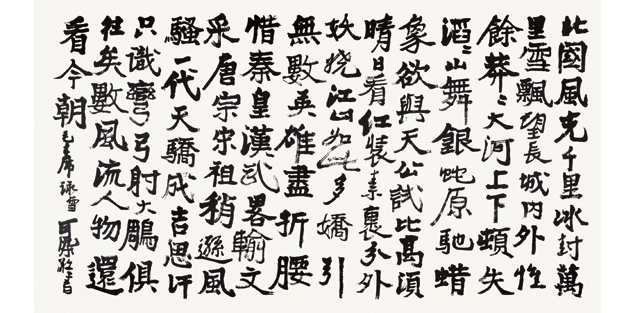 北國風光千里冰封萬
里雪飄望長城内外惟
餘莽〻大河上下頓失
滔〻山舞銀蛇原馳蜡
象欲與天公試比高須
晴日看红裝素裹分外
妖娆江山如此多嬌引
無數英雄盡折腰
惜秦皇漢武畧輸文
采唐宗宋祖稍遜風
騷一代天驕成吉思汗
只識彎弓射大鵰俱
往矣數風流人物還
看今朝 毛主席詠雪 可染